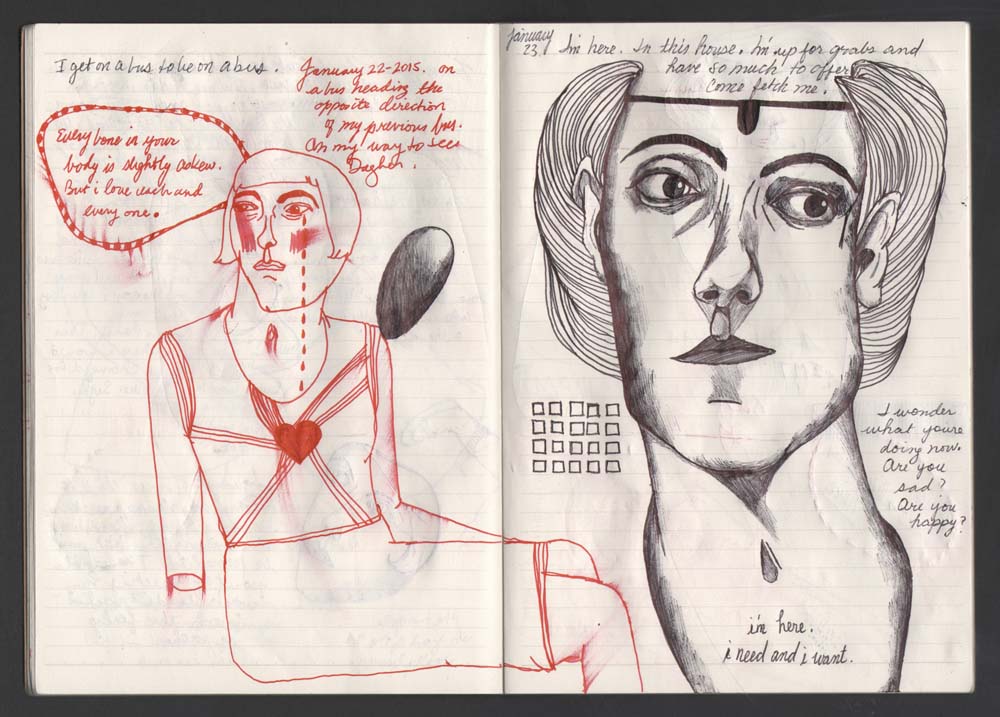 I get on a bus to be on a bus.
January 22-2015. on
a bus heading the
opposite direction
of my previous bus.
On my way to see
Dagher.
Every bone in your
body is slightly askew.
But i love each and
every one.
January
23.
I'm here. In this house. I'm up for grabs and
have so much to offer
come fetch me.
I wonder
what youre
doing now.
Are you
sad?
Are you
happy?
i'm here.
i need and i want.